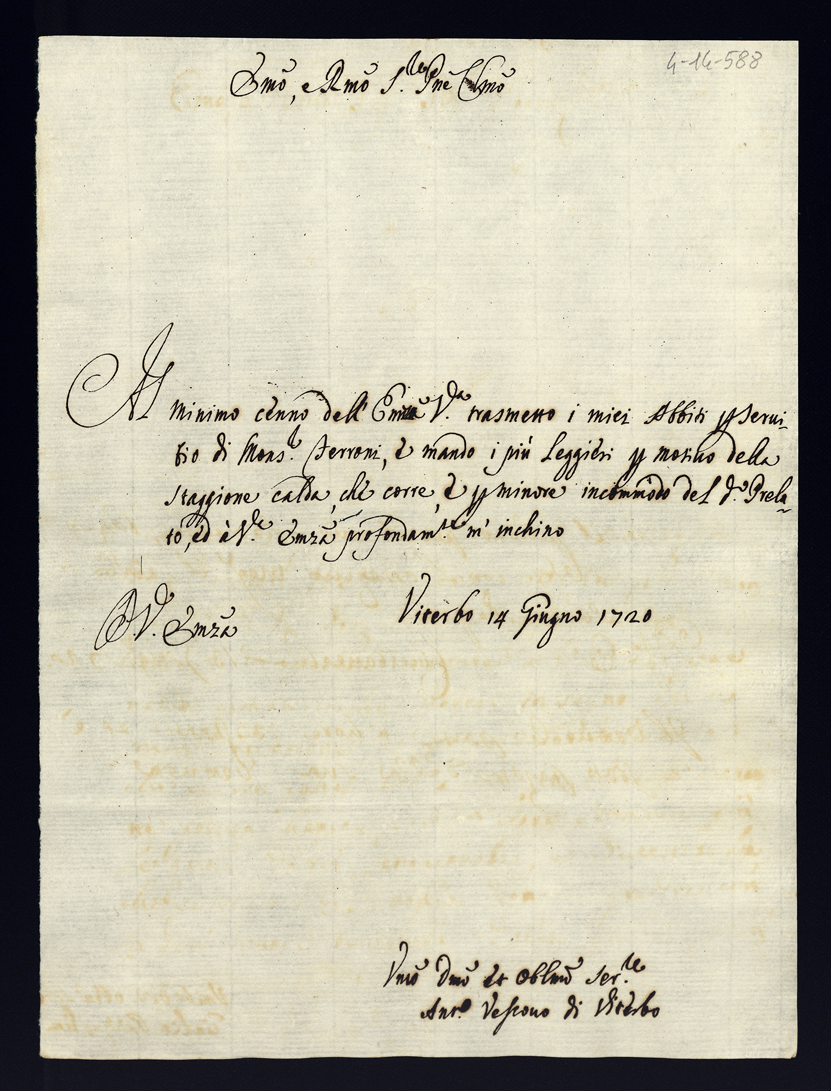 4-14-588
Emō, e Rmō S.re Pne Colmō
Al minimo cenno dell' Emza V.ra trasmetto i miei Abbiti p servi-
tio di Mons.r Ferroni, è mando i più leggieri p motivo della
staggione calda, che corre, è p minore incommodo del d.o Prela-
to, ed à V.ra Emza profondam.te m' inchino
D V. Emza
Viterbo 14 Giugno 1720
Vmō Dmō et Obblmō Ser.re
Ant.o Vescovo di Viterbo